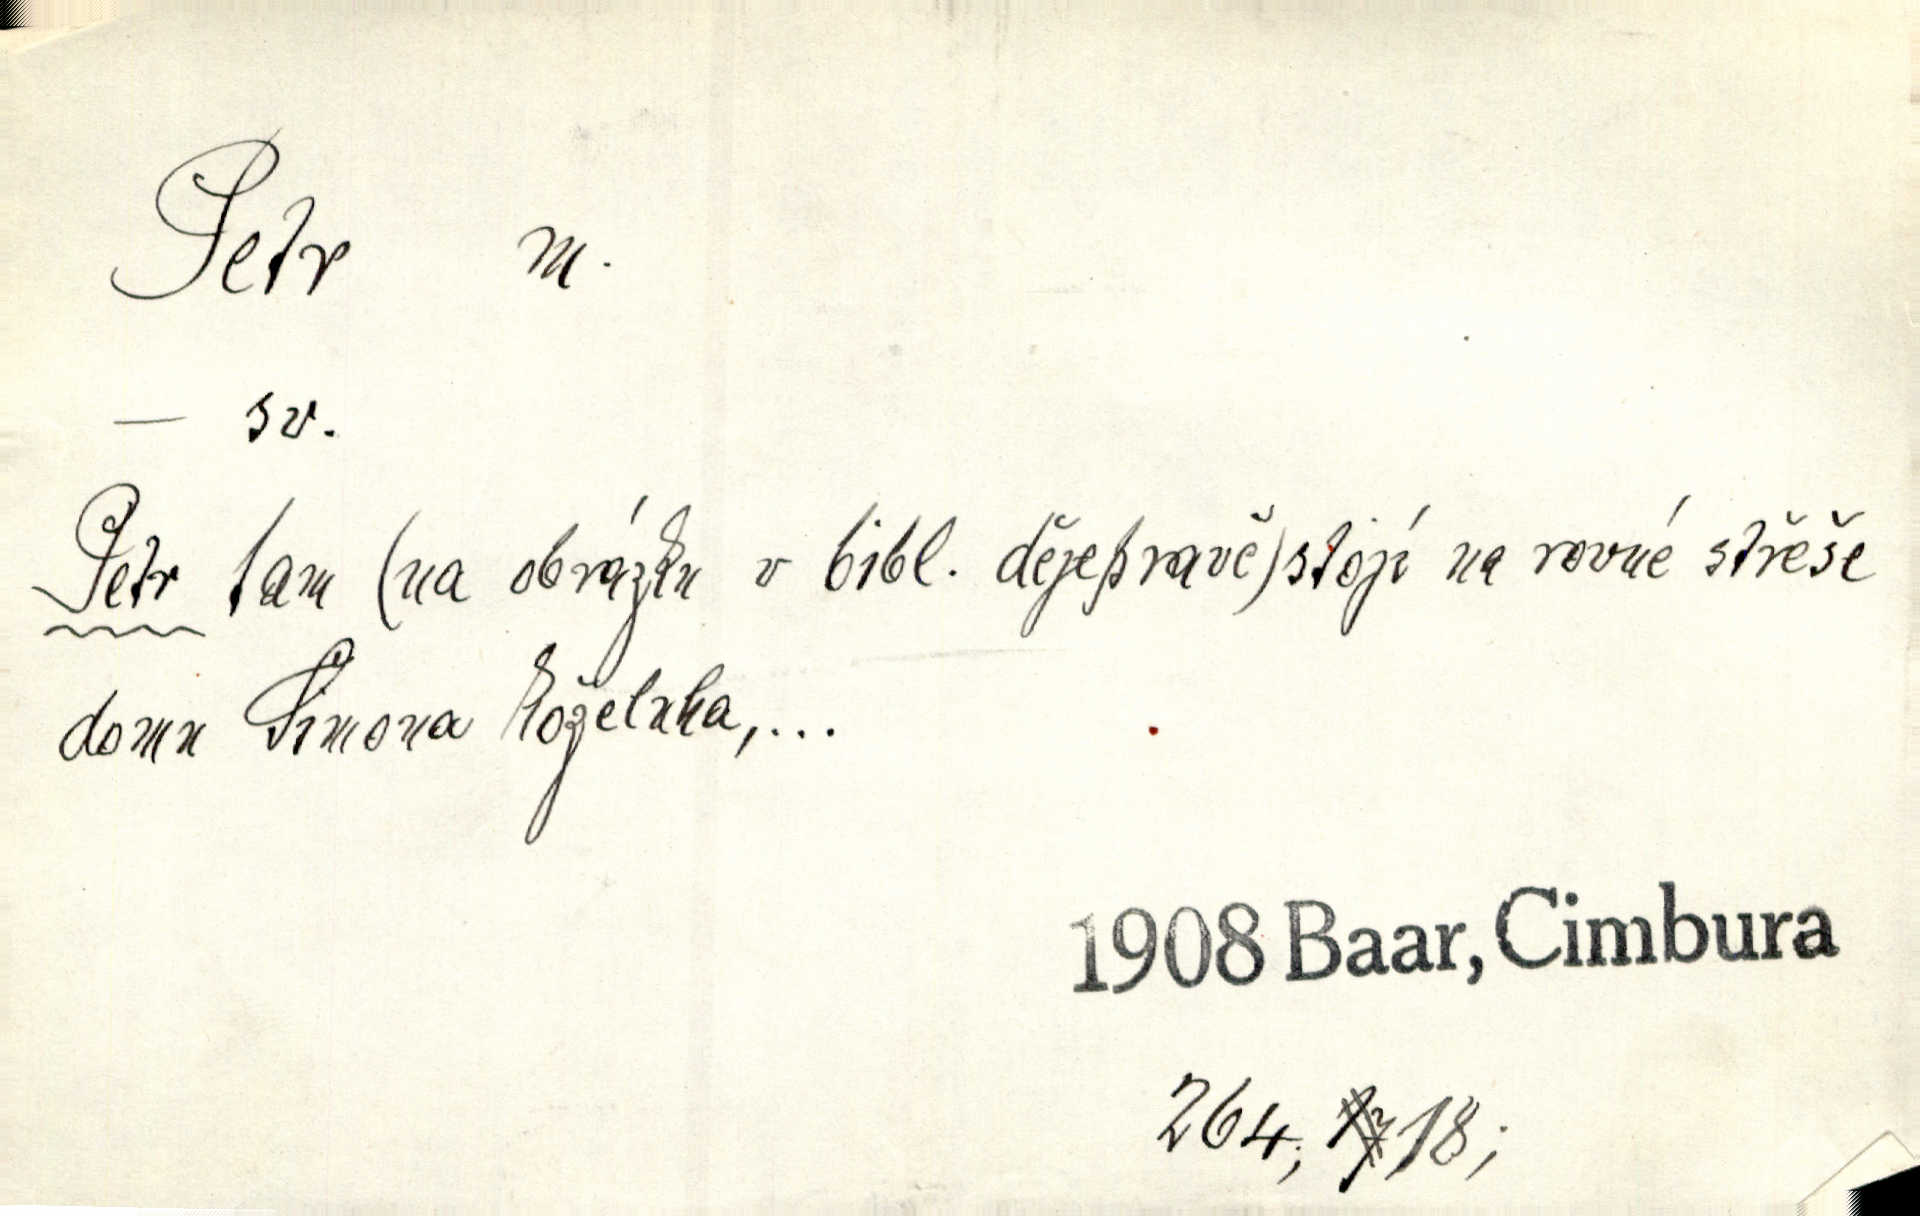 Petr m.
— sv.
Petr tam (na obrázku v bibl. dějepravě) stojí na rovné střeše
domu Šimona koželuha, ...
1908 Baar, Cimbura
264, 18;